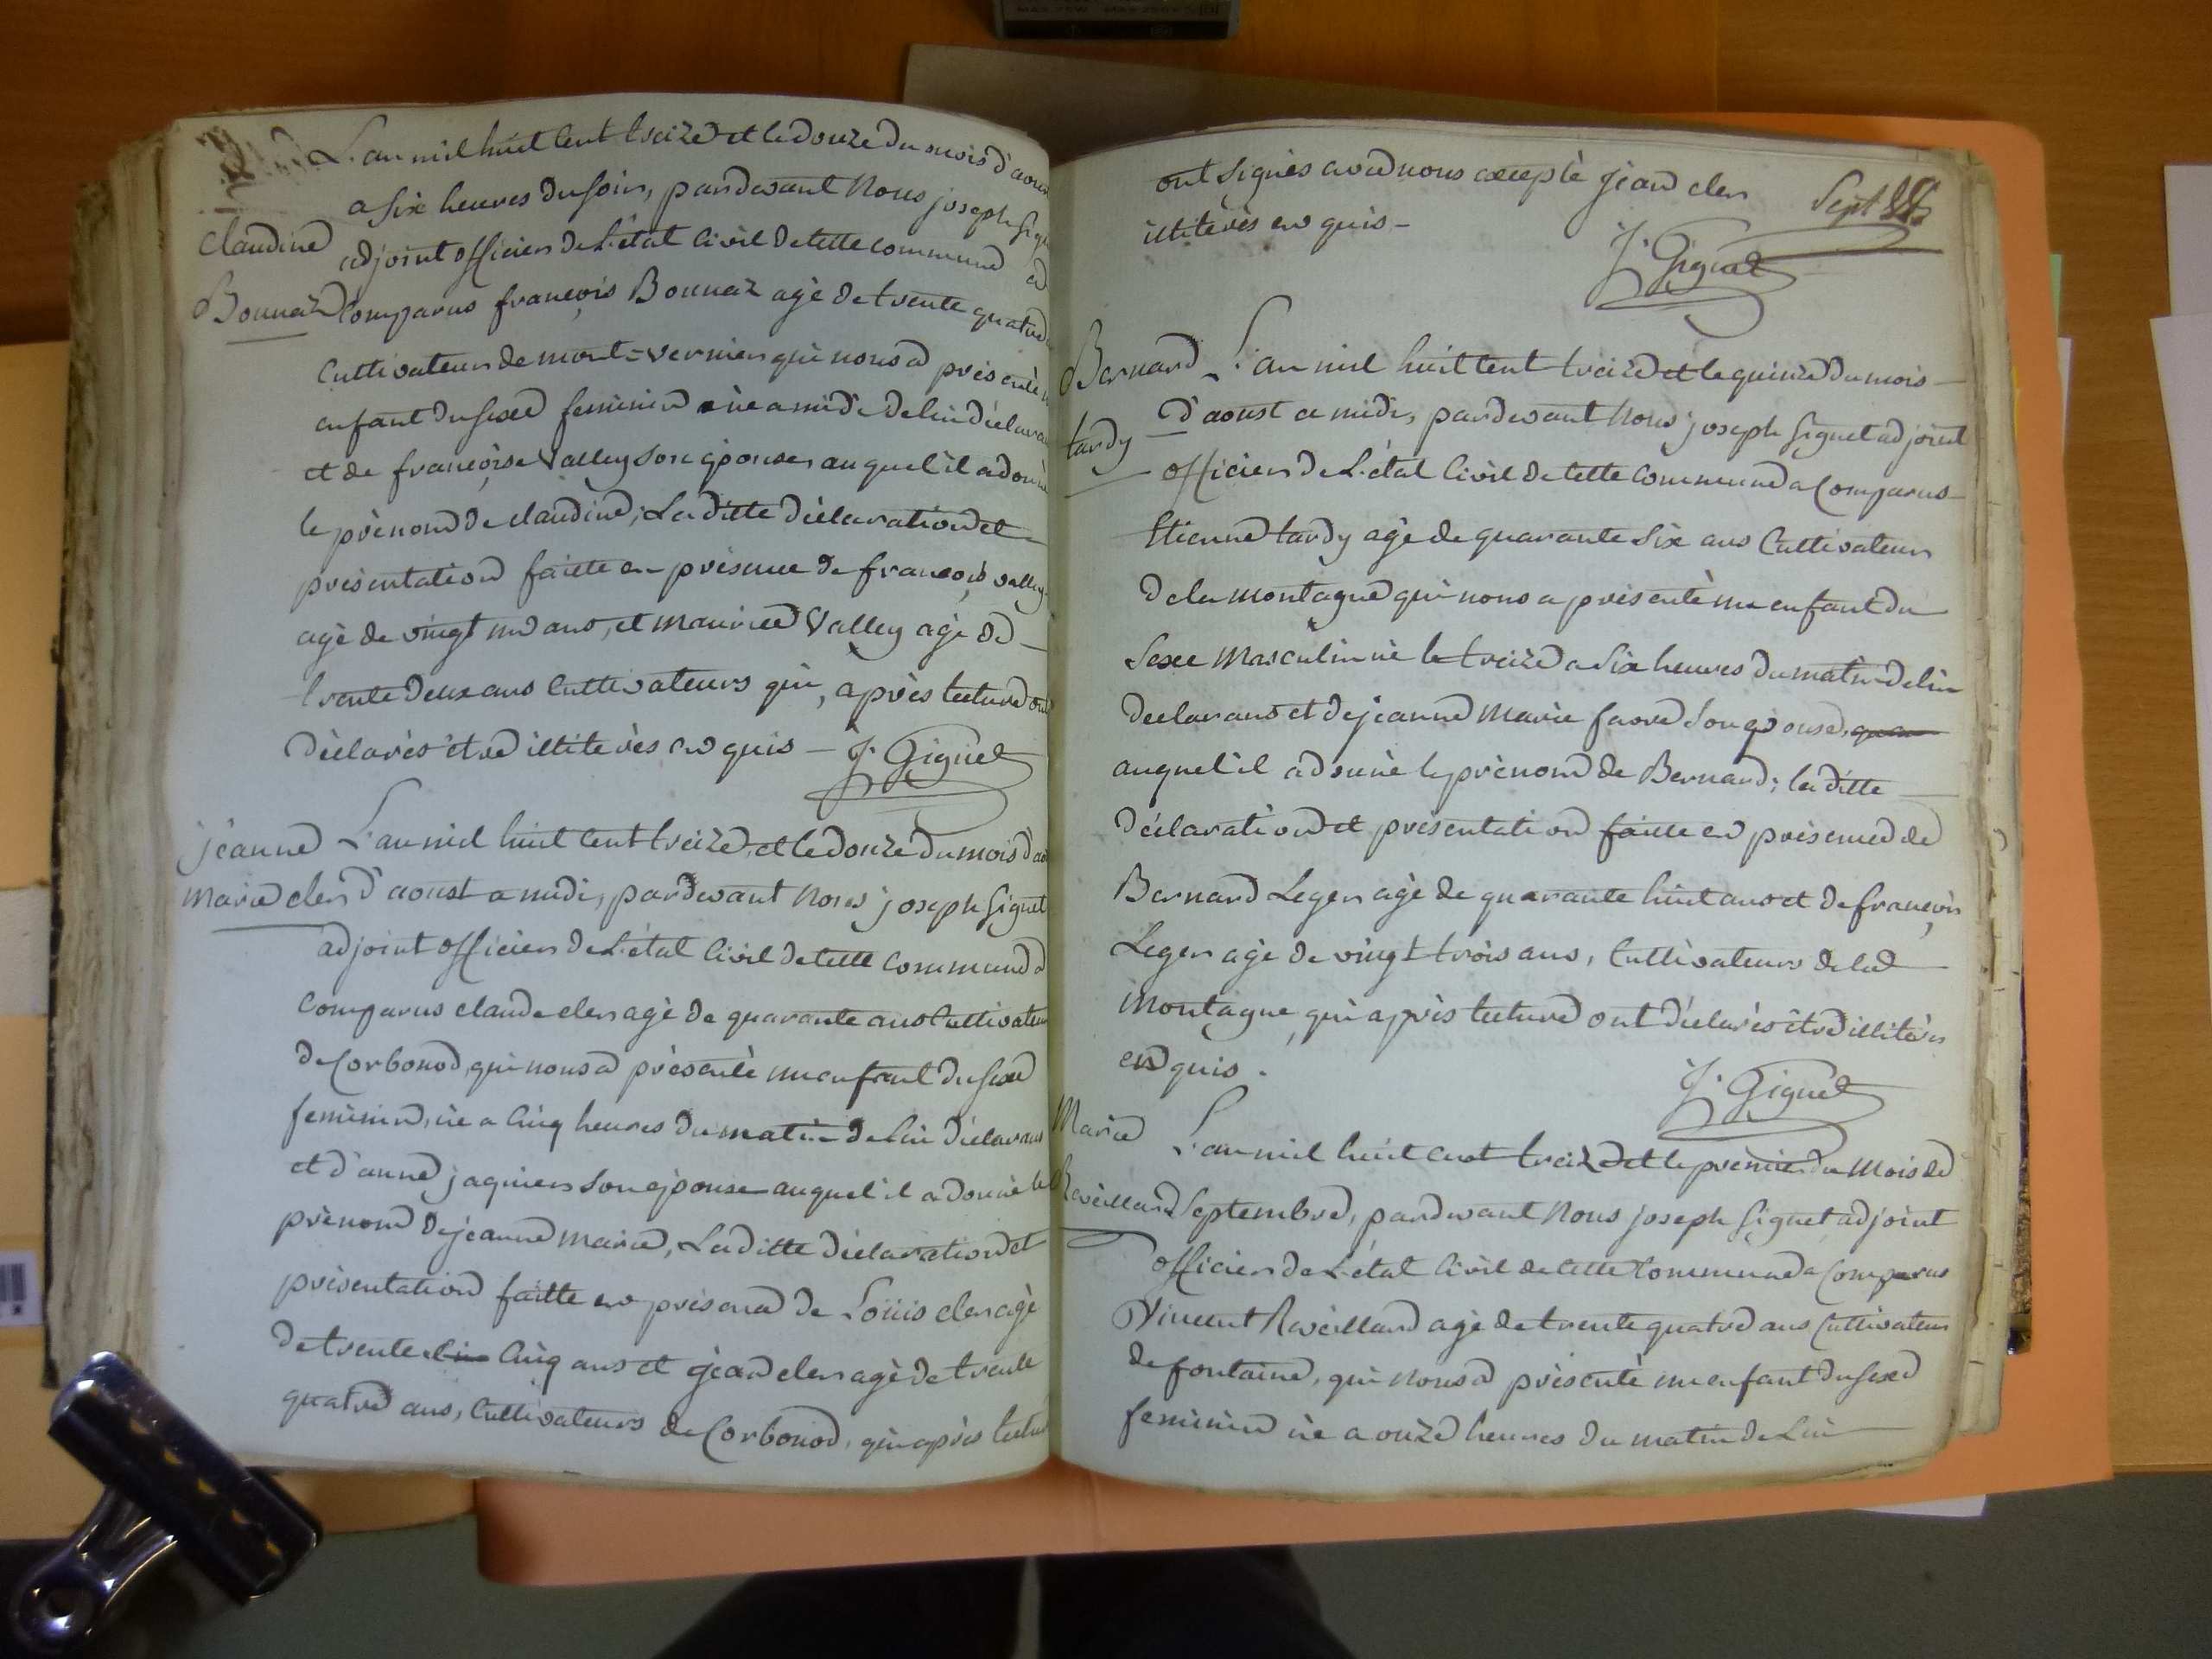 L'an mil huit cent treize et le douze du mois d'aoust
a six heures du soir, pardevant Nous joseph Gignet
Claudine
adjoint officier de L'état Civil de cette commune a
Bonnaz
Comparus françois Bonnaz agé de trente quatre
Cultivateur de mont-vernier qui nous a présenté
enfant du sexe feminin née a midi de lui déclarant
et de françoise Valley son épouse, auquel il a donné
le prénom de claudine; La ditte déclaration et
présentation faitte en présence de françois valley
agé de vingt un ans, et maurice Valley agé de
trente deux ans Cultivateurs qui, après lecture ont
déclarés être illitérés en quis - J. Gignet
jeanne
L'an mil huit cent treize, et le douze du mois d'ao
marie cler
d'aoust a midi, pardevant Nous joseph Gignet
adjoint officier de L'état Civil de cette commune a
Comparus claude cler agé de quarante ans Cultivateur
de Corbonod, qui nous a présenté un enfant du sexe
feminin, née a Cinq heures du matin de lui déclarant
et d'anne jaquier son épouse auquel il a donné le
prénom de jeanne marie, La ditte déclaration et
présentation faitte en présence de Loüis cler agé
de trente Cinq ans et jean cler agé de trente
quatre ans, Cultivateurs de Corbonod, qui après lecture
ont signés avec nous accepté jean cler
Sept
illiterés en quis -
J. Gignet
Bernard
L'an mil huit cent treize et le quinze du mois
tardy
d'aoust a midi, pardevant Nous joseph Gignet adjoint
officier de L'état Civil de cette Commune a Comparus
Etienne tardy agé de quarante six ans Cultivateur
de la montagne qui nous a présenté un enfant du
sexe Masculin né le treize a six heures du matin de lui
déclarans et de jeanne Marie favre son épouse,
auquel il a donné le prénom de Bernard; la ditte
déclaration et presentation faitte en présence de
Bernard Leger agé de quarante huit ans et de françois
Leger agé de vingt trois ans, Cultivateurs de la
Montagne, qui après lecture ont déclarés être illitérés
en quis.
J. Gignet
Marie
L'an mil huit cent treize et le premier du Mois de
Reveillard
Septembre, pardevant Nous joseph Gignet adjoint
officier de L'état Civil de cette Commune a Comparus
Vincent Reveillard agé de trente quatre ans Cultivateur
de fontaine, qui nous a présenté un enfant du sexe
feminin née a onze heures du matin de Lui